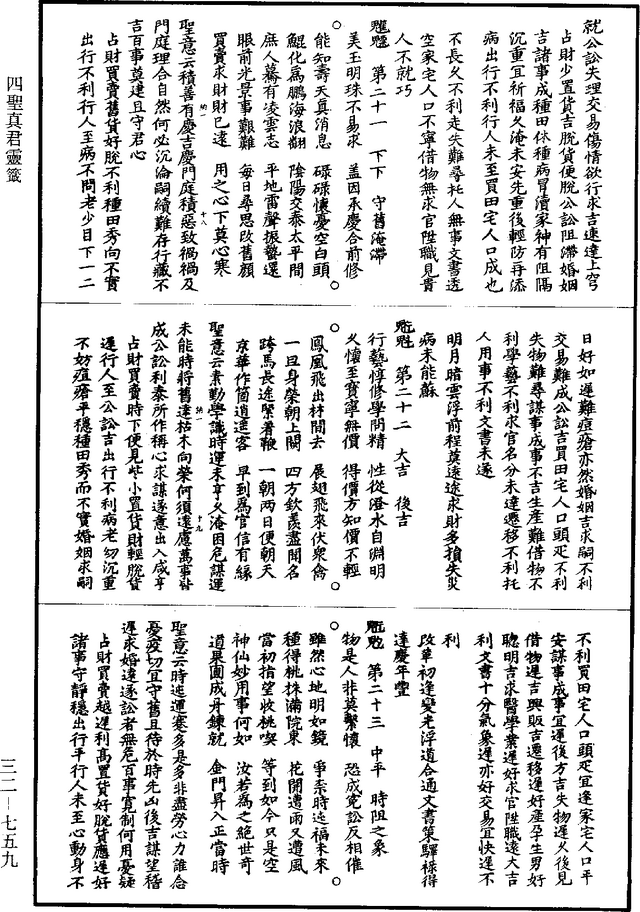 就公訟失理交易傷情欲行求吉速達上穹
占財少置貨吉脫貨便脫公訟阻滯婚姻
吉諸事成種田休種病冒瀆家神有阻隔
沉重宜祈福久淹未安先重後輕防再添
病出行不利行人未至買田宅人口成也
不長久不利走失難尋托人無事文書透
空家宅人口不寧借物無求官陞職見貴
人不就巧
第二十一 下下 守舊淹滯
美玉明珠不易求 蓋因承慶合前修
能知壽夭真消息 碌碌懷憂空白頭
鯤化爲鵬海浪翻 陰陽交泰太平間
庶人驀有凌雲志 平地雷聲振蟄還
眼前光景事艱難 每日尋思改舊顏
買賣求財財已遠 用之心下莫心寒
聖意云積善有慶吉慶門庭積惡致禍禍及
門庭理合自然何必沉淪嗣續難存行藏不
吉百事莫達且守君心
占財買賣舊貨好脫不利種田秀向不實
出行不利行人至病不問老少目下一二
日好如遲難痘瘡亦然婚姻吉求嗣不利
交易難成公訟吉買田宅人口頭疋不利
失物難尋謀事成事不吉生產難借物不
利學藝不利求官名分未達遷移不利托
人用事不利文書未遂
明月暗雲浮前程莫遠途求財多損失災
病未能蘇
第二十二 大吉 後吉
行藝惇修學問精 性從澄水自淵明
久懷至寶寧無價 得價方知價不輕
鳳凰飛出林間去 展翅飛來伏衆禽
一旦身榮朝上闕 四方欽羨盡聞名
跨馬長途緊着鞭 一朝兩日便朝天
京華作箇逍遙客 早到爲官信有緣
聖意云素勤學識時運未亨久淹困危謀運
未能時將舊達枯木向榮何須遠慮萬事皆
成公訟利泰所作稱心求謀遂意出入咸亨
占財買賣時下便見些小置貨財輕脫貨
遲行人至公訟吉出行不利病老幼沉重
不妨痘瘡平穩種田秀而不實婚姻求嗣
不利買田宅人口頭疋宜遲家宅人口平
安謀事成事宜遲後方吉失物遲久後見
借物遲吉興販吉遷移遲好產孕生男好
聰明吉求醫學業遲好求官陞職遠大吉
利文書十分氣象遲亦好交易宜快遲不
利
改革初逢變光浮道合通文書策驛祿得
達慶年豐
第二十三 中平 時阻之象
物是人非莫繫懷 恐成寃訟反相催
雖然心地明如鏡 爭柰時迍福未來
種得桃株滿院東 花開遭雨又遭風
當初指望收桃喫 等到如今只是空
神仙妙用事何如 汝若爲之絕世奇
道果圓成丹鍊就 金門昇入正當時
聖意云時迍運蹇多是多非盡勞心力誰合
憂疑切宜守舊且待於時先凶後吉謀望稽
遲求婚違遂訟者無危百事寬制何用憂疑
占財買賣越遲利高置貨好脫貨應遲好
諸事守靜穩出行平行人未至心動身不
四聖真君靈籤
三二—七五九